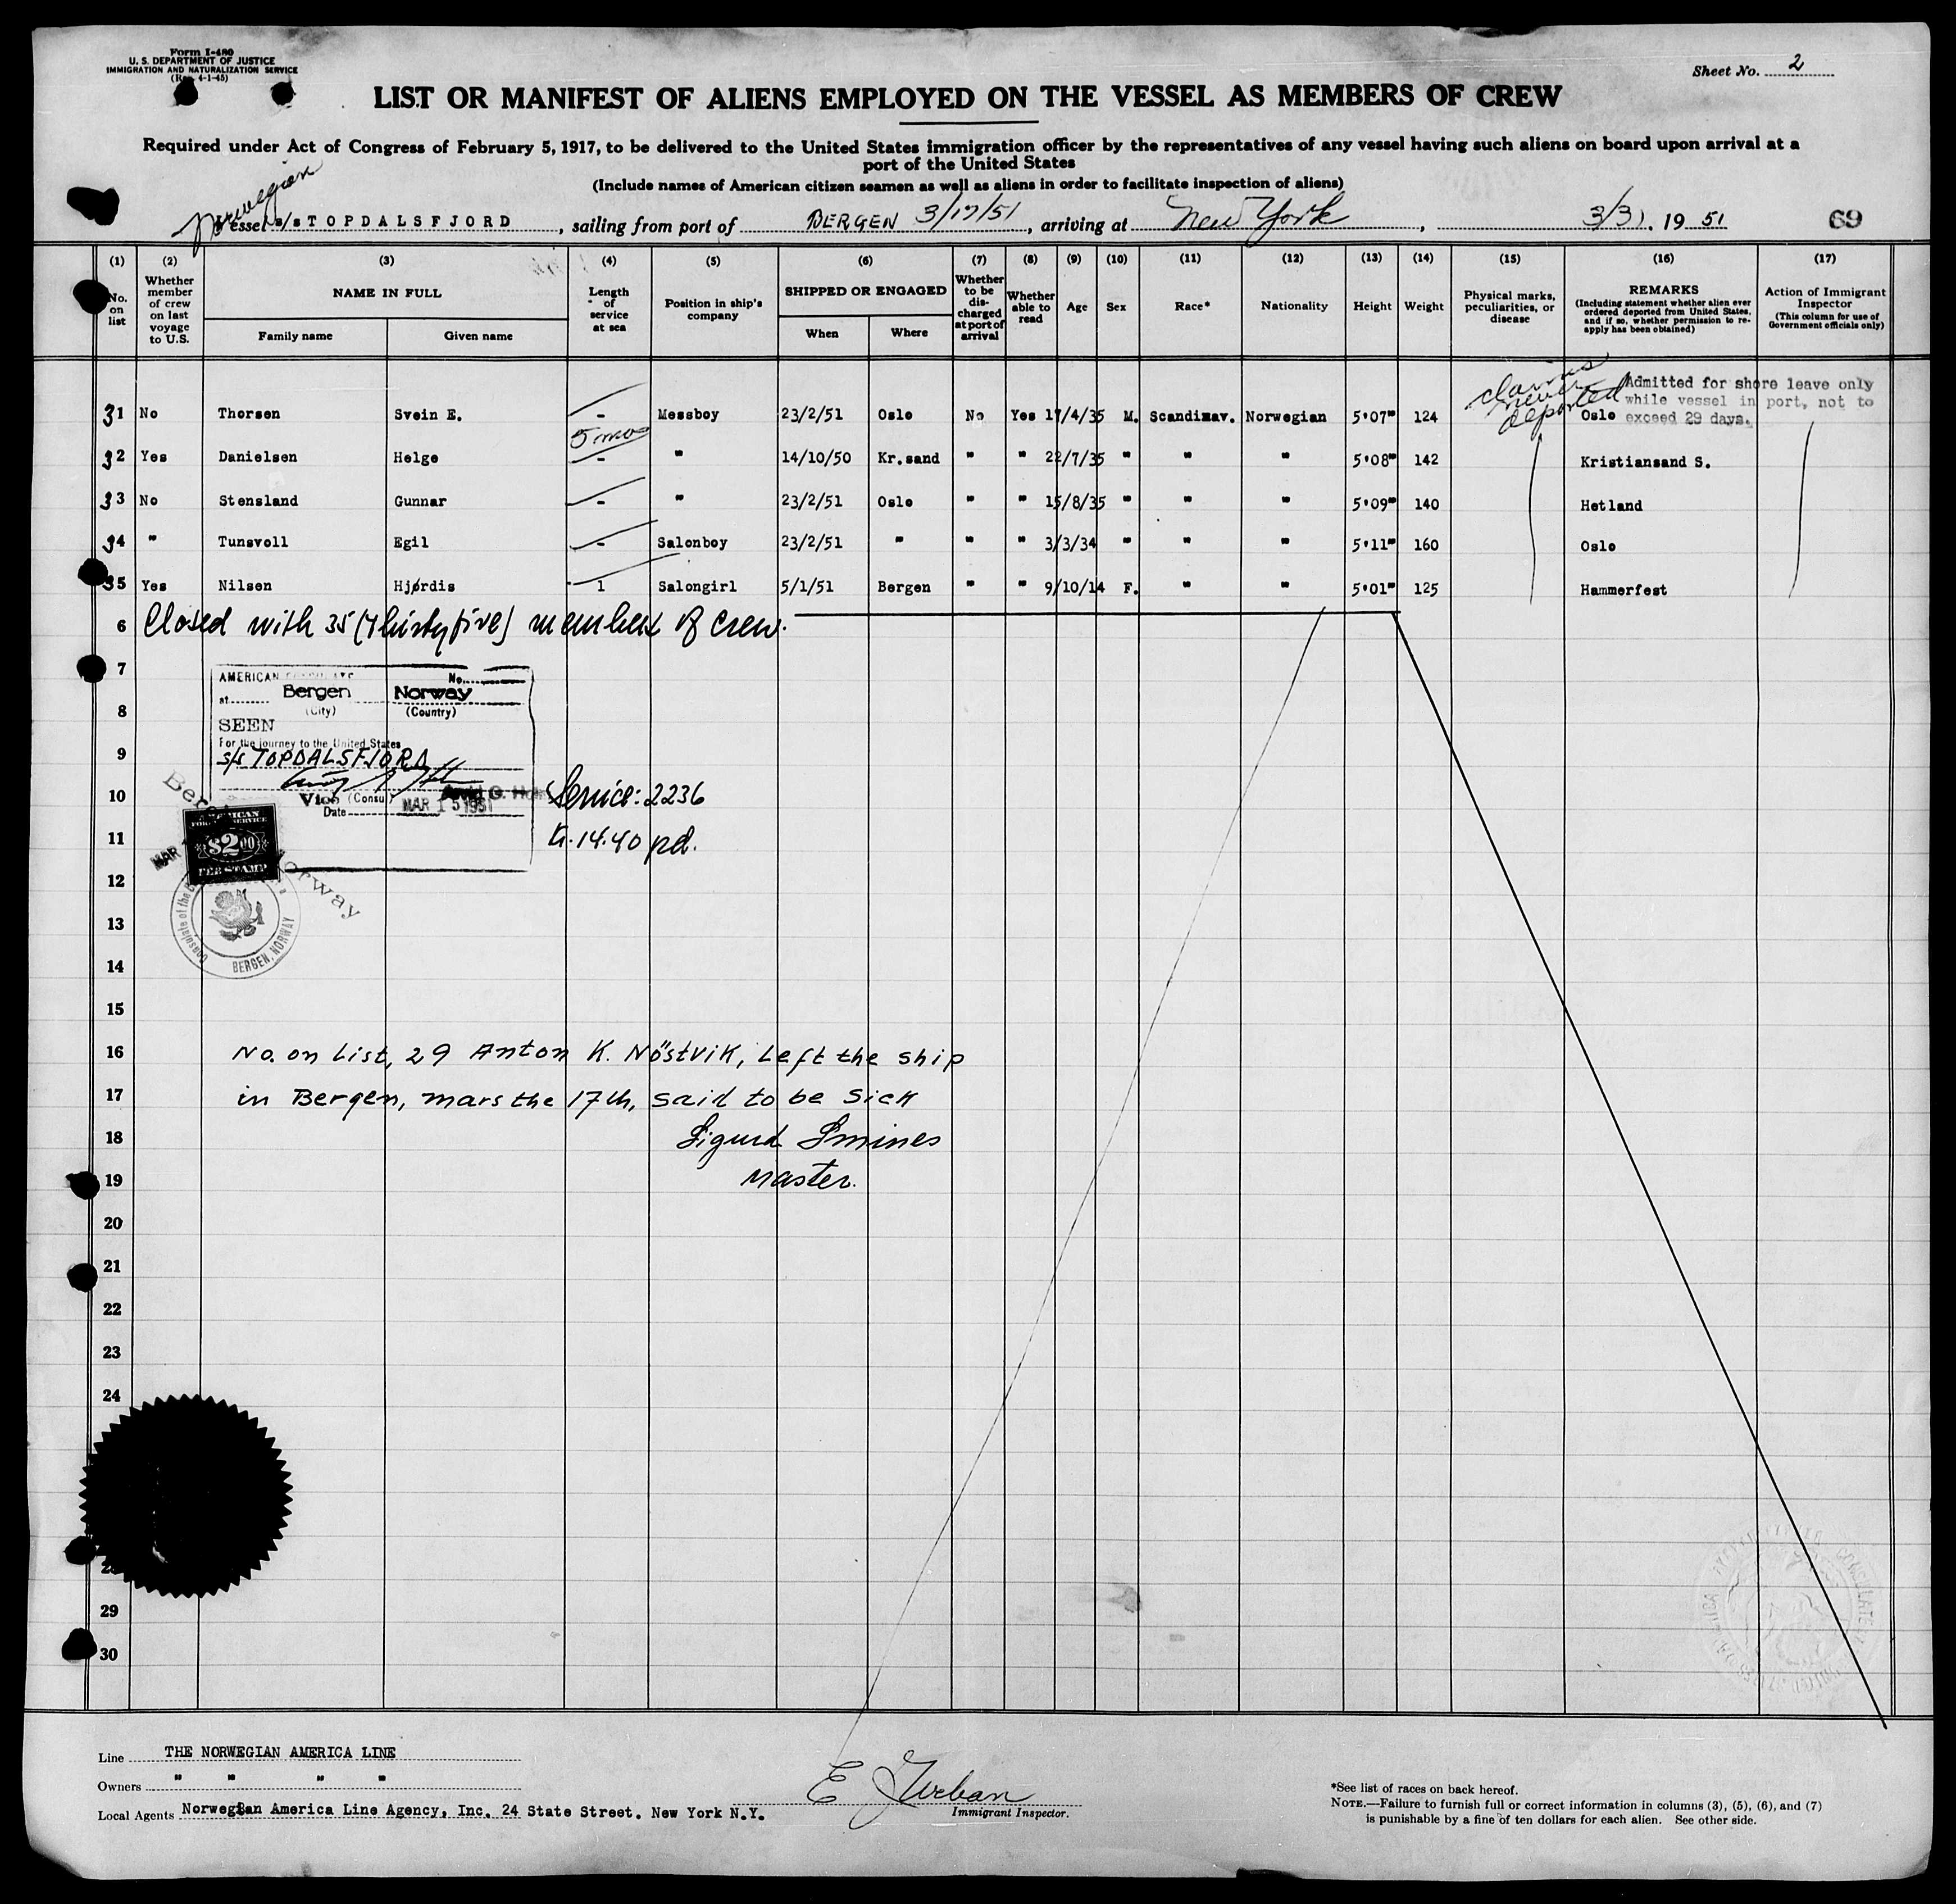 Form I-480
U. S. DEPARTMENT OF JUSTICE
IMMIGRATION AND NATURALIZATION SERVICE
(Rev. 4-1-45)
Sheet No. 2
LIST OR MANIFEST OF ALIENS EMPLOYED ON THE VESSEL AS MEMBERS OF CREW
Required under Act of Congress of February 5, 1917, to be delivered to the United States immigration officer by the representatives of any vessel having such aliens on board upon arrival at a
port of the United States
(Include names of American citizen seamen as well as aliens in order to facilitate inspection of aliens)
Norwegian
Vessel s/s TOPDALSFJORD, sailing from port of BERGEN 3/17/51, arriving at New York, 3/31, 1951 69
(1) (2) (3) (4) (5) (6) (7) (8) (9) (10) (11) (12) (13) (14) (15) (16) (17)
No. on list
Whether member of crew on last voyage to U.S.
NAME IN FULL
Family name
Given name
Length of service at sea
Position in ship's company
SHIPPED OR ENGAGED
When
Where
Whether to be discharged at port of arrival
Whether able to read
Age
Sex
Race*
Nationality
Height
Weight
Physical marks, peculiarities, or disease
REMARKS
(Including statement whether alien ever ordered deported from United States, and if so, whether permission to reapply has been obtained)
Action of Immigrant Inspector
(This column for use of Government officials only)
claims never deported
Admitted for shore leave only
while vessel in port, not to
exceed 29 days.
31 No Thorsen Svein E. - Messboy 23/2/51 Oslo No Yes 17/4/35 M. Scandinav. Norwegian 5'07" 124 Oslo
5 mos
32 Yes Danielsen Helge - " 14/10/50 Kr.sand " " 22/7/35 " " " 5'08" 142 Kristiansand S.
33 No Stensland Gunnar - " 23/2/51 Oslo " " 15/8/35 " " " 5'09" 140 Hetland
34 " Tunsvoll Egil - Salonboy 23/2/51 " " " 3/3/34 " " " 5'11" 160 Oslo
35 Yes Nilsen Hjørdis 1 Salongirl 5/1/51 Bergen " " 9/10/14 F. " " 5'01" 125 Hammerfest
6 Closed with 35 (thirtyfive) members of crew.
7
AMERICAN CONSULATE No.
at Bergen Norway
8
(City) (Country)
SEEN
For the journey to the United States
9
s/s TOPDALSFJORD
10
Vice (Consul)
Date MAR 15 1951
Service: 2236
11
Kr. 14.40 pd.
Bergen, Norway
MAR
AMERICAN
FOREIGN SERVICE
$2.00
FEE STAMP
12
13
BERGEN, NORWAY
14
15
16 No. on List, 29 Anton K. Nöstvik, Left the ship
17 in Bergen, mars the 17th, said to be sick
18 Sigurd Smines
19 Master.
20
21
22
23
24
29
30
Line THE NORWEGIAN AMERICA LINE
Owners " " " "
Local Agents Norwegian America Line Agency, Inc. 24 State Street. New York N.Y.
E Jurban
Immigrant Inspector.
*See list of races on back hereof.
NOTE.—Failure to furnish full or correct information in columns (3), (5), (6), and (7)
is punishable by a fine of ten dollars for each alien. See other side.